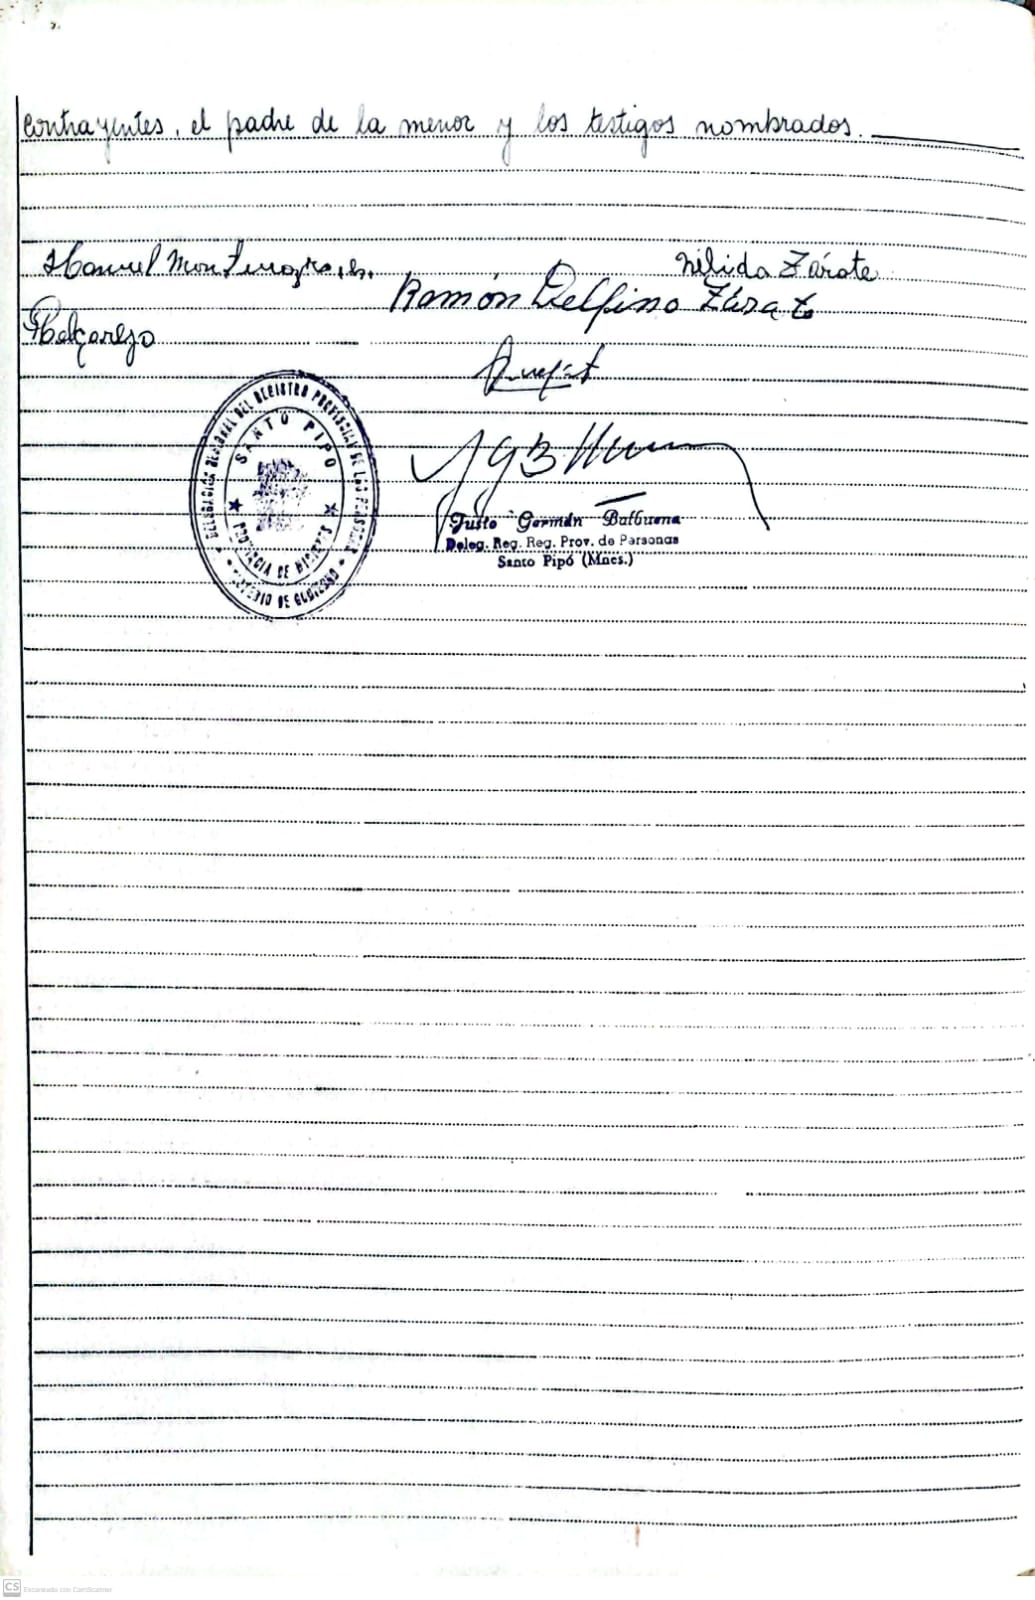 contrayentes, el padre de la menor y los testigos nombrados.
Nélida Zárate
Ramón Delfino Zárate
DELEGACIÓN REGIONAL DEL REGISTRO PROVINCIAL DE LAS PERSONAS
SANTO PIPO
PROVINCIA DE MISIONES
MINISTERIO DE GOBIERNO
Justo Germán Balbuena
Deleg. Reg. Reg. Prov. de Personas
Santo Pipó (Mnes.)
CS Escaneado con CamScanner